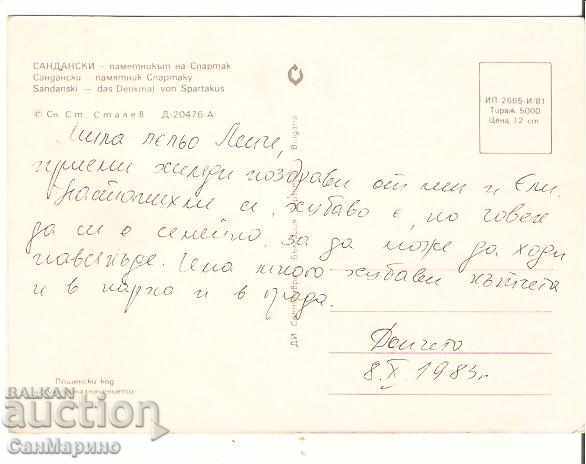 САНДАНСКИ – паметникът на Спартак
Сандански – памятник Спартаку
Sandanski – das Denkmal von Spartakus
© Сн. Ст. Сталев Д-20476-А
ИП 2665-И/81
Тираж 5000
Цена 12 ст
Bulgaria
ДИ
Мила лельо Ленче,
приеми хиляди поздрави от мен и Ели.
и хубаво е, но човек
да си е семейно, за да може да ходи
навсякъде. Има много хубави кътчета
и в парка и в града.
Фенчето
8.X.1983г
Пощенски код
BALKAN
auction
СанМарино